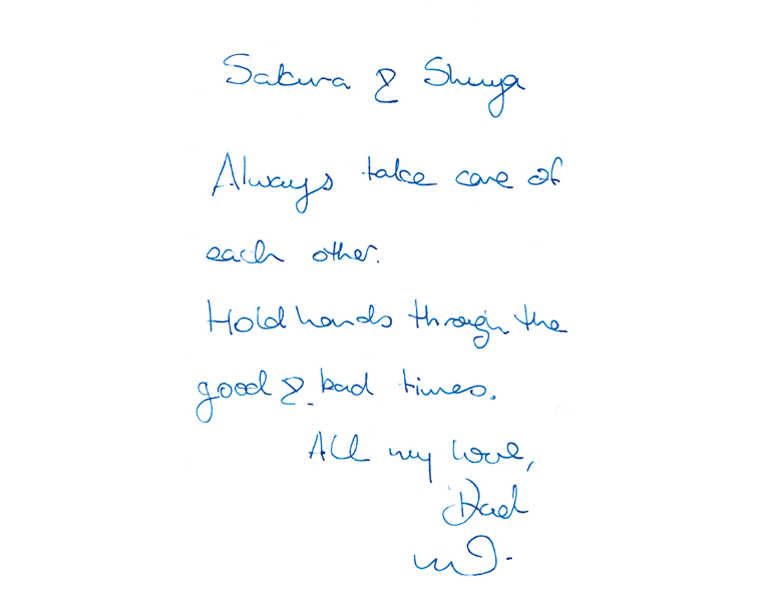 Sakura & Shuya
Always take care of
each other.
Hold hands through the
good & bad times.
All my love,
Dad